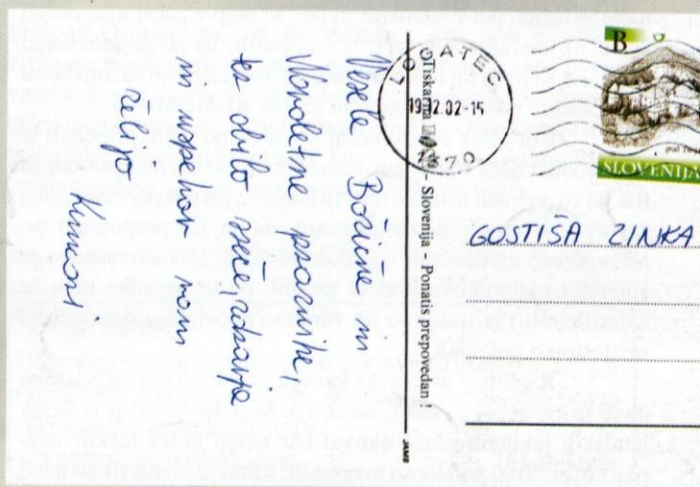 Vesele Božične in
Novoletne praznike
ter obilo smeha, zdravja
in uspehov vam
želijo
Tiskarna - Slovenija - Ponatis prepovedan !
JAME
LOGATEC
19.12.02-15
1370
B
SLOVENIJA
GOSTIŠA ZINKA